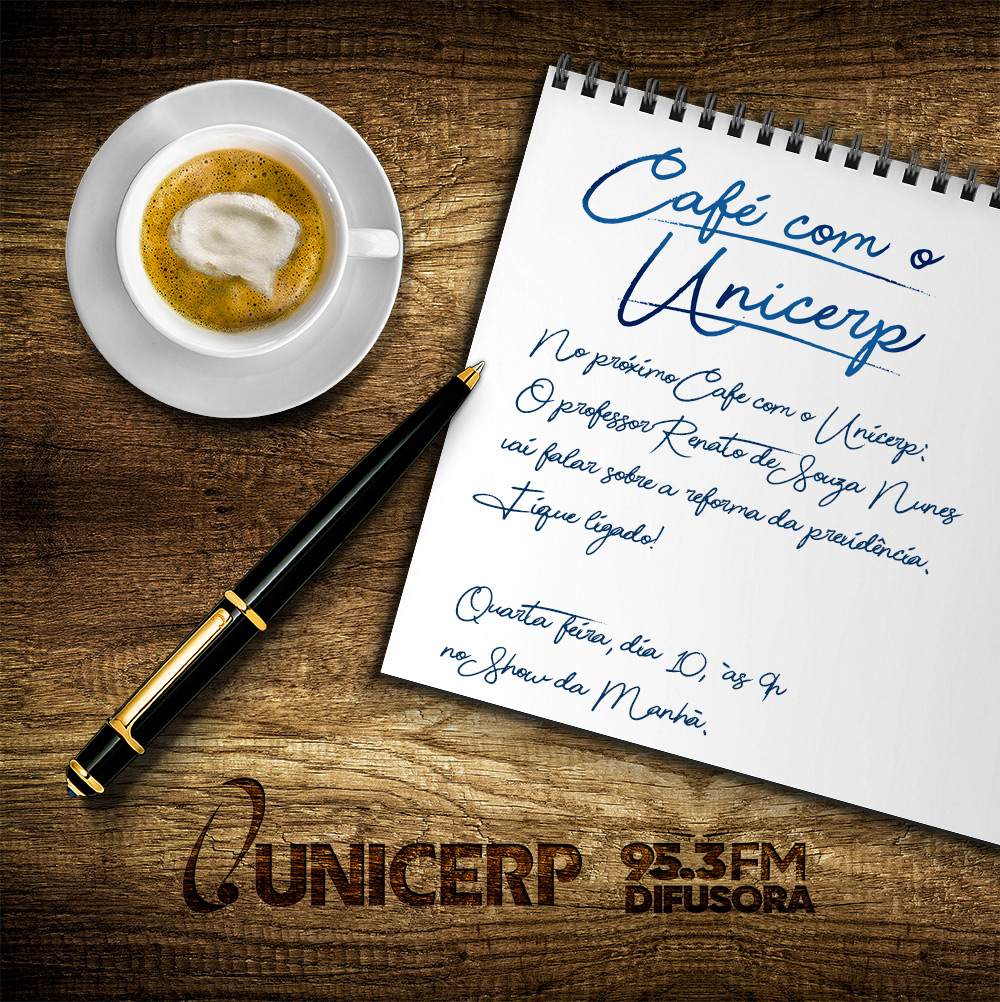 Café com o
Unicerp
No próximo Cafe com o Unicerp:
O professor Renato de Souza Nunes
vai falar sobre a reforma da previdência.
Fique ligado!
Quarta feira, dia 10, às 9h
no Show da Manhã.
UNICERP
95.3 FM
DIFUSORA